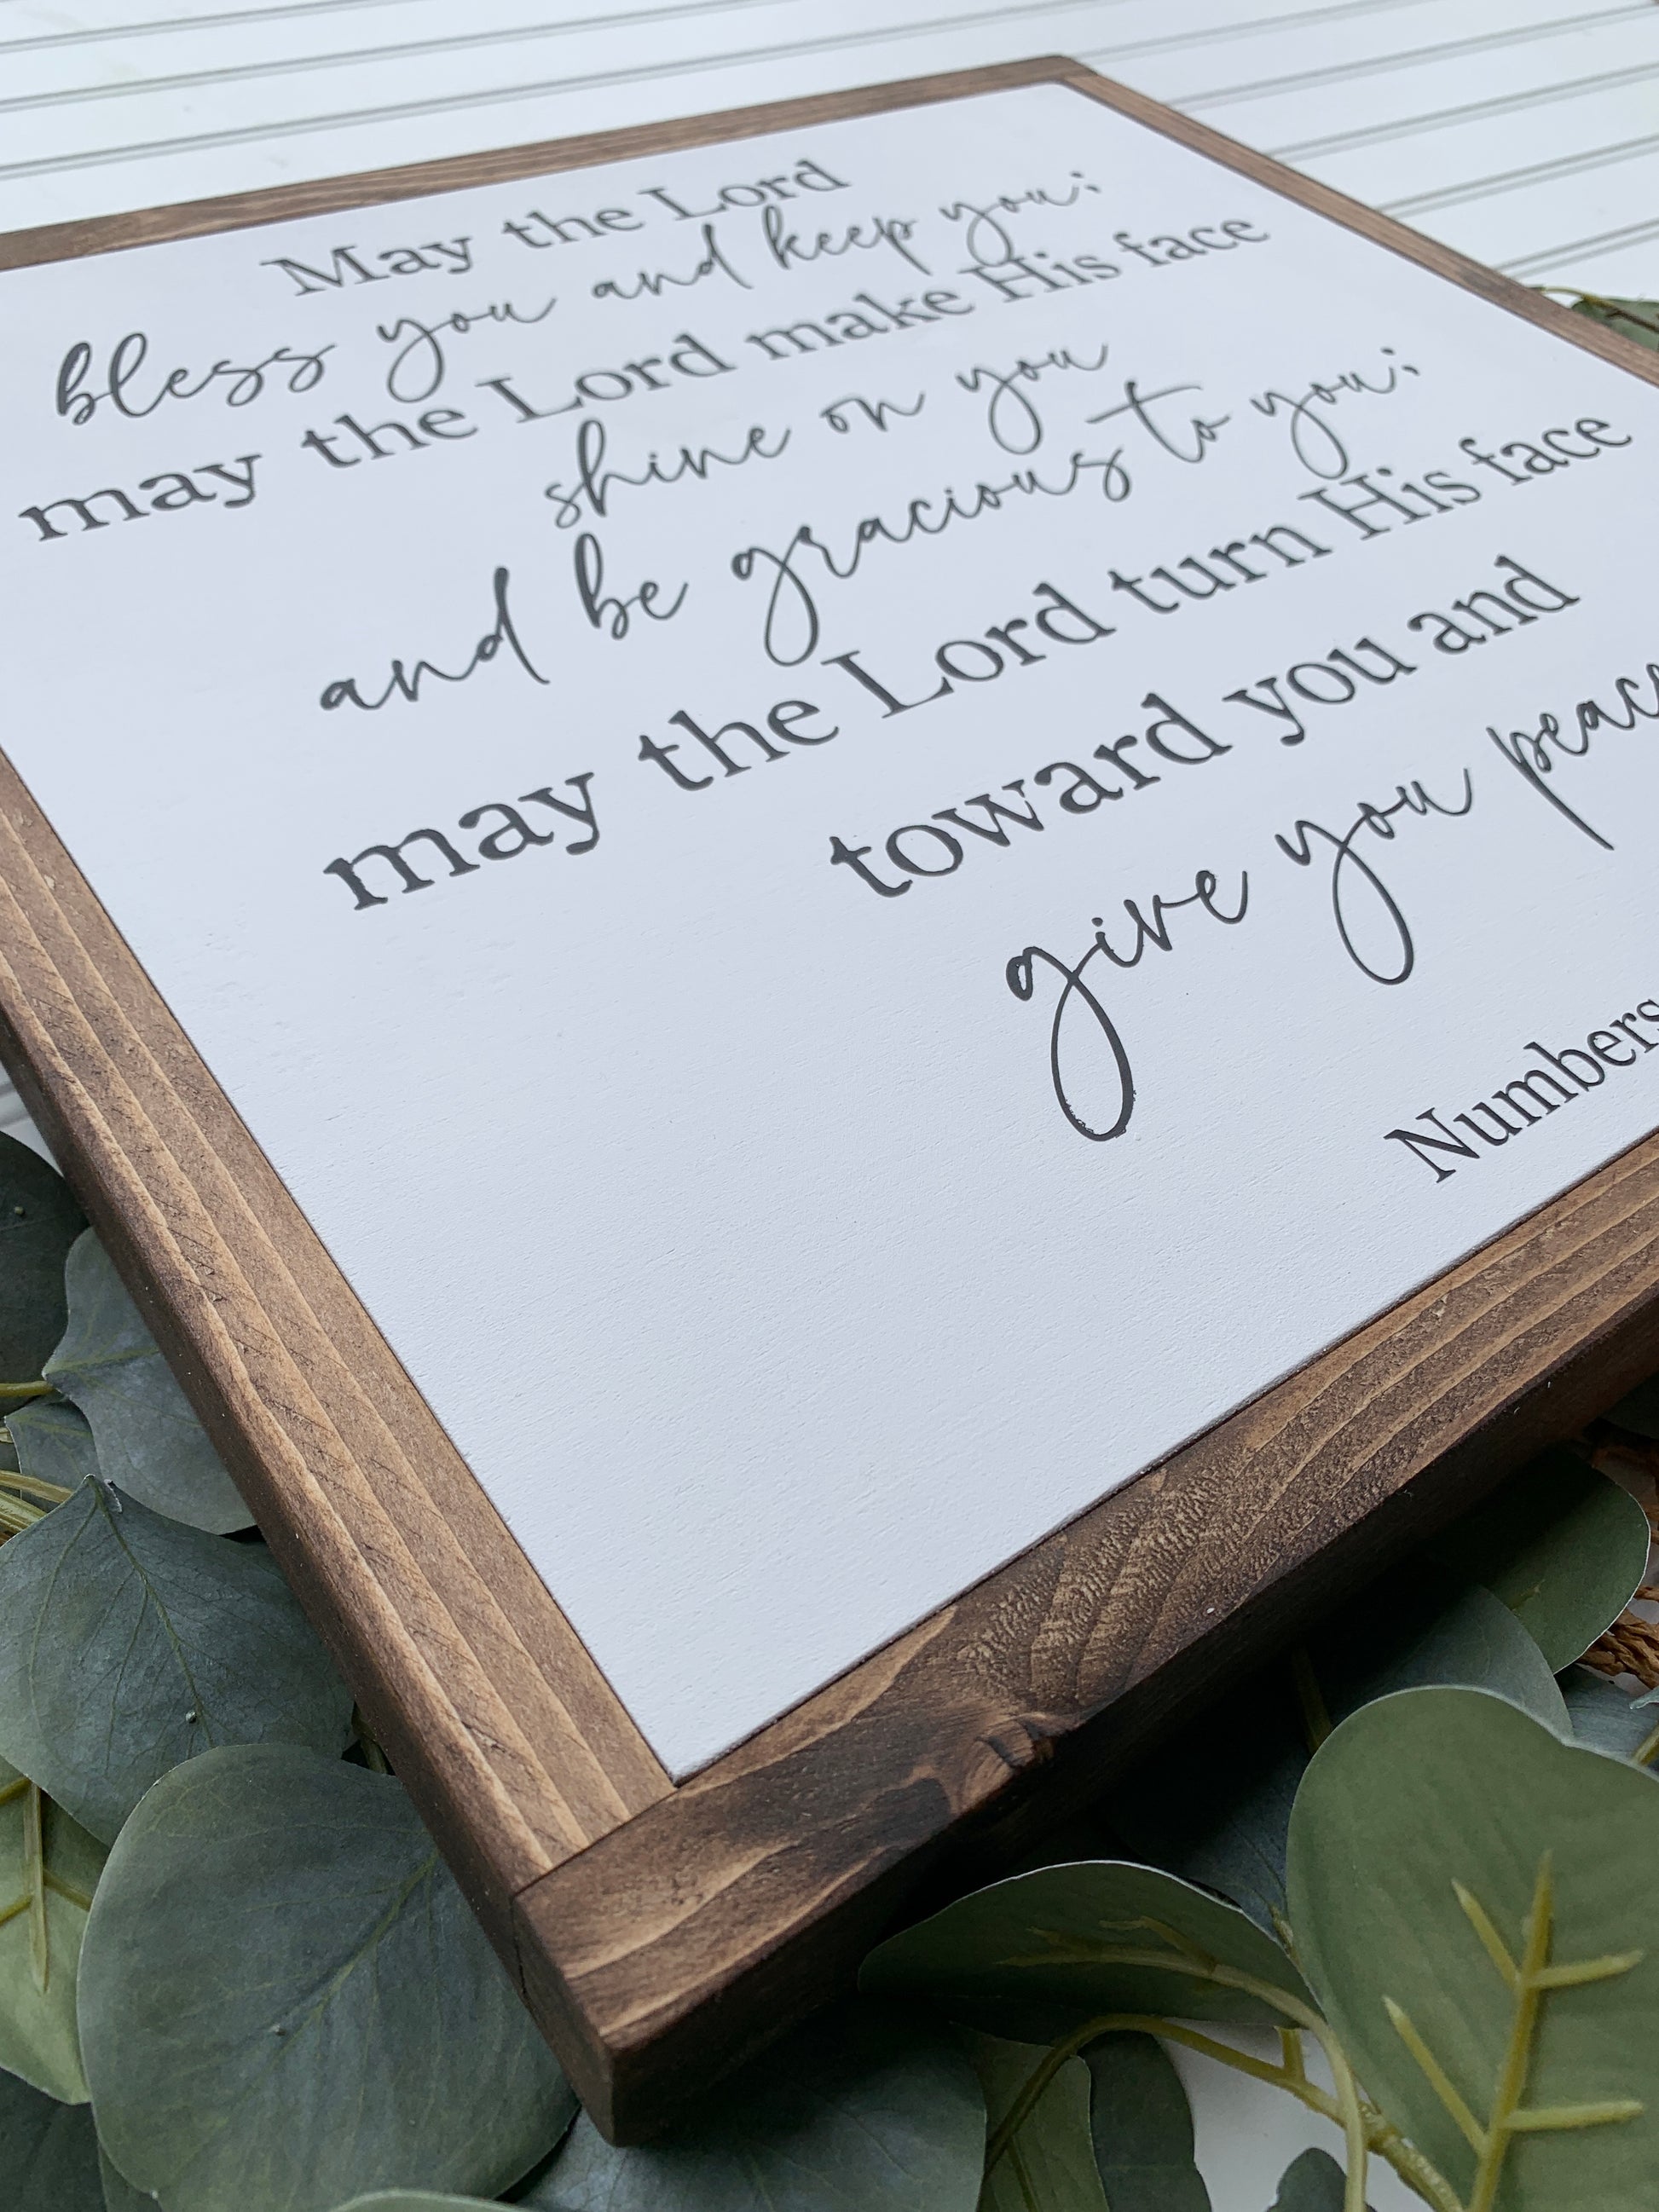 May the Lord
bless you and keep you;
may the Lord make His face
shine on you
and be gracious to you;
may the Lord turn His face
toward you and
give you peac
Numbers